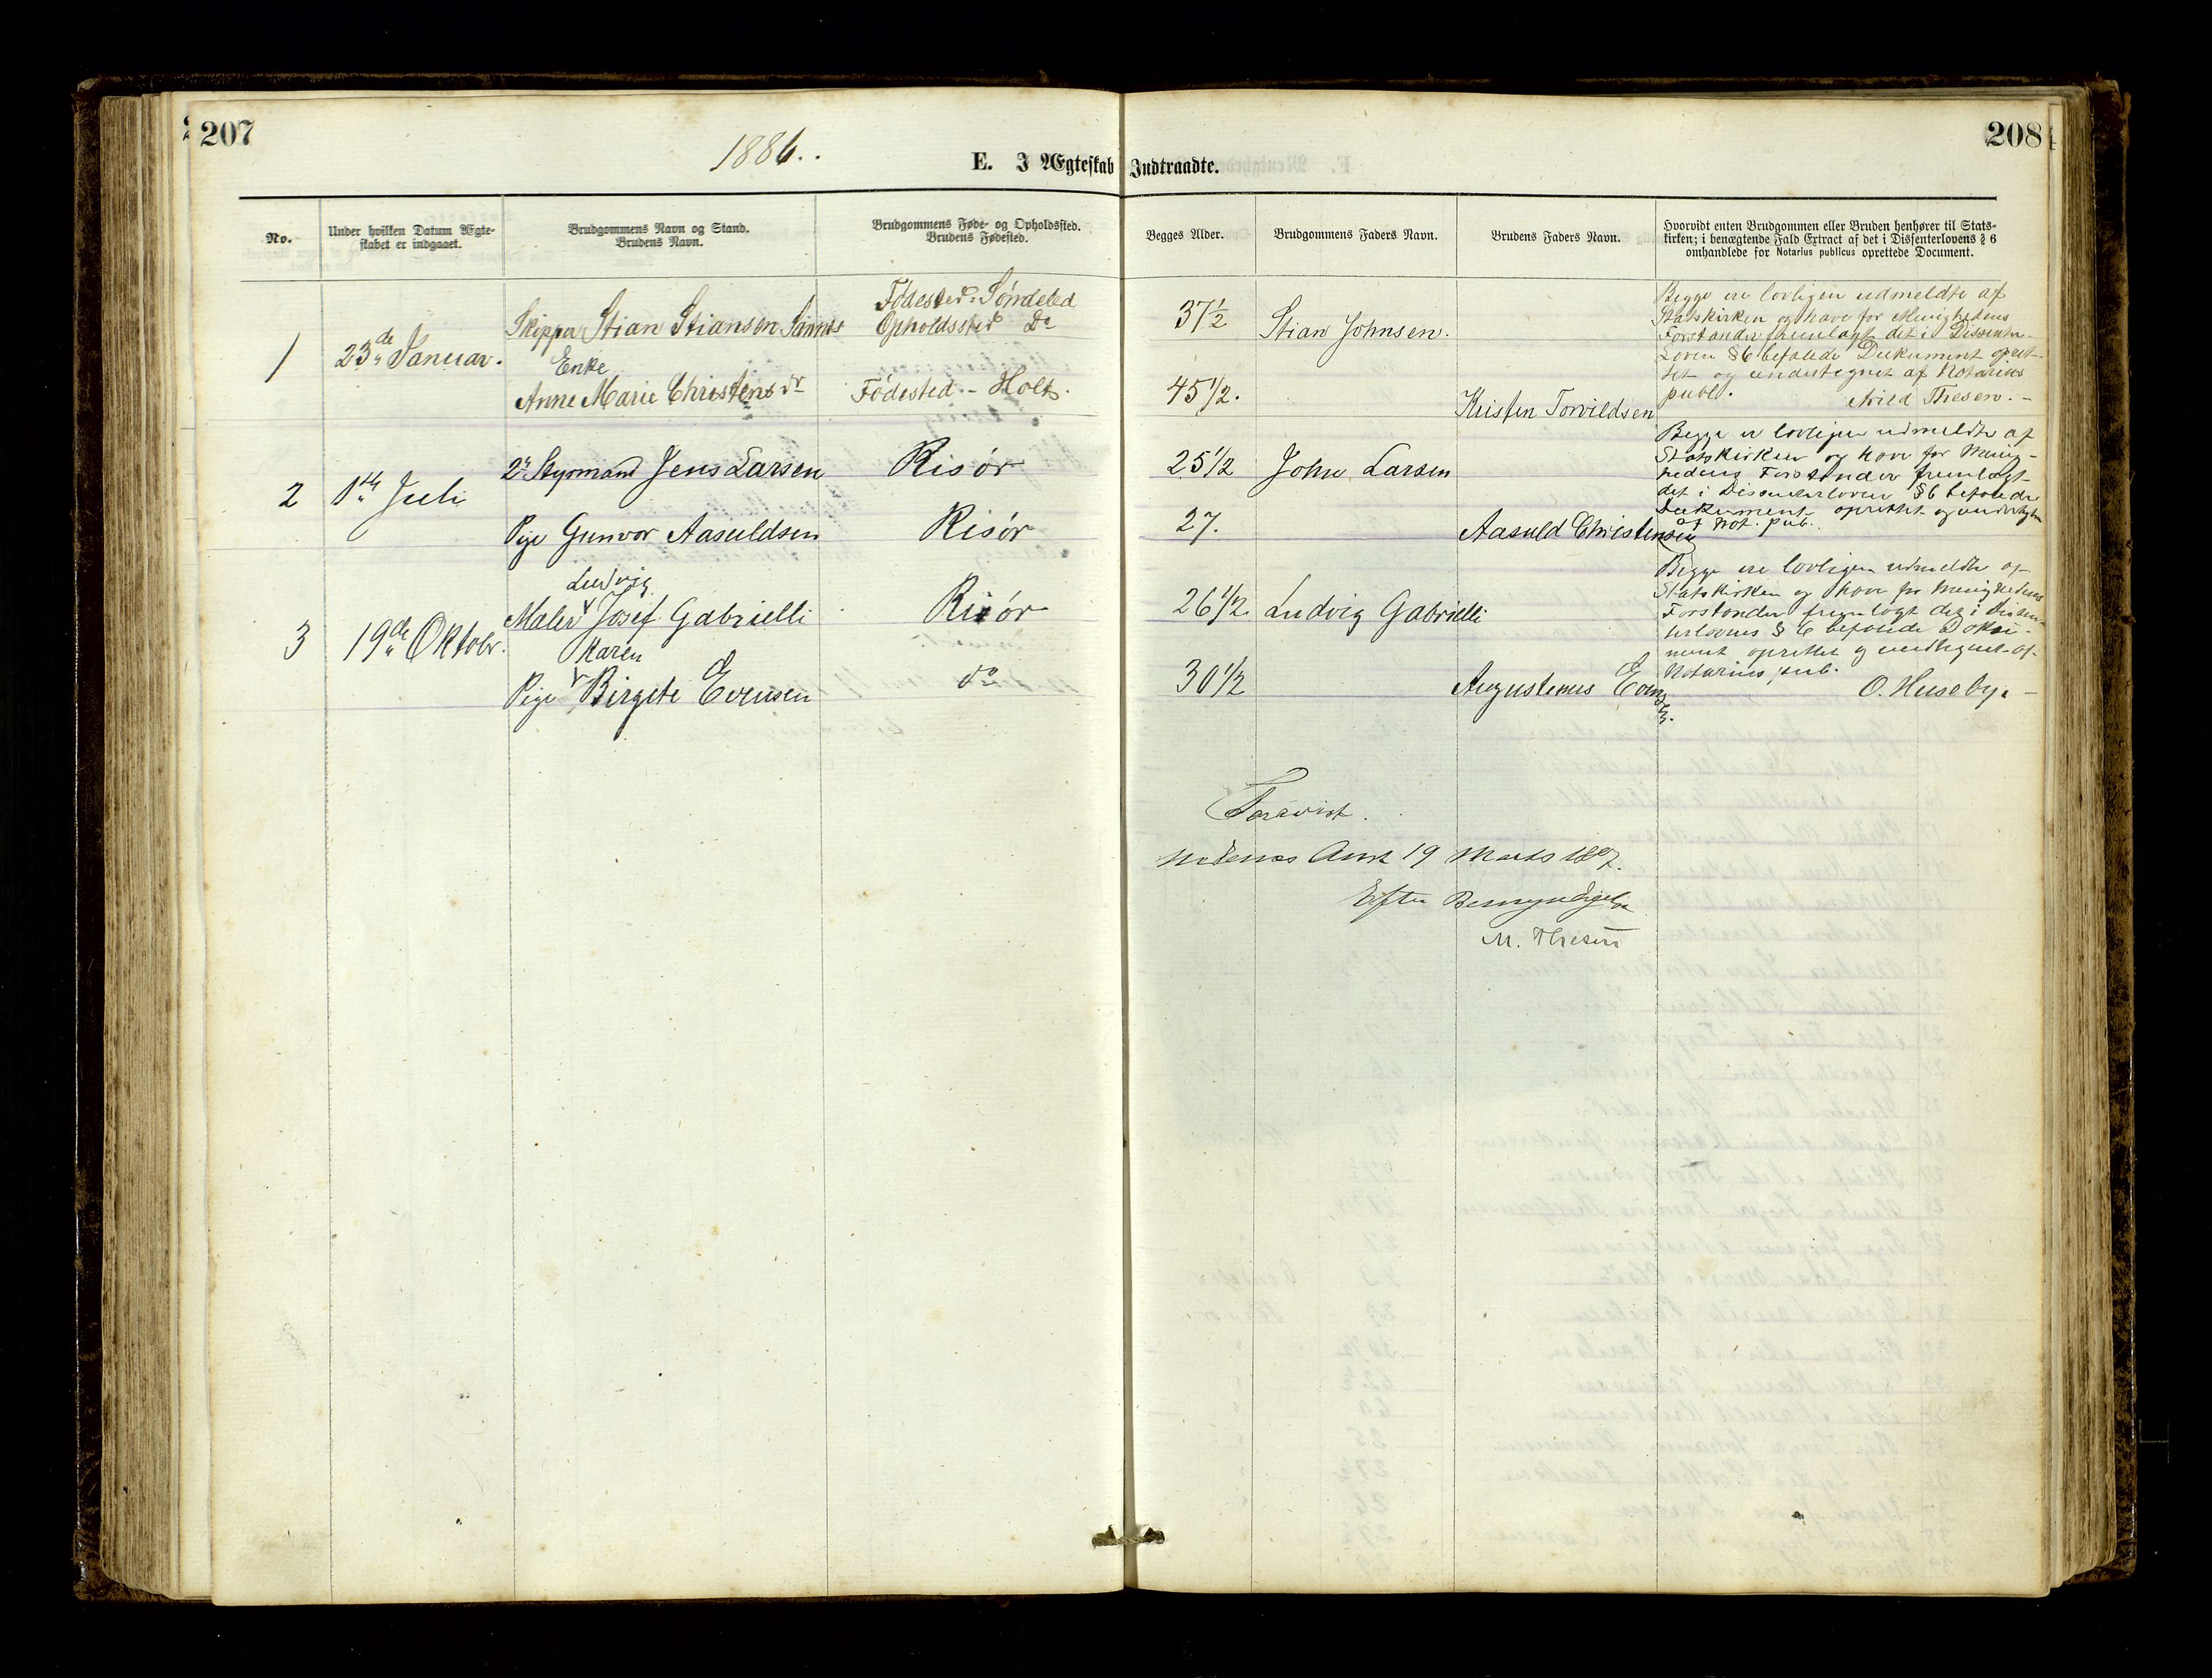 207
208
1886.
E. I Ægteskab Indtraadte.
No.
Under hvilken Datum Ægte-
skabet er indgaaet.
Brudgommens Navn og Stand.
Brudens Navn.
Brudgommens Føde- og Opholdssted.
Brudens Fødested.
Begges Alder.
Brudgommens Faders Navn.
Brudens Faders Navn.
Hvorvidt enten Brudgommen eller Bruden henhører til Stats-
kirken; i benægtende Fald Extract af det i Dissenterlovens § 6
omhandlede for Notarius publicus oprettede Document.
1
23de Januar.
Skipper Stian Stiansen
Enke
Anne Marie Christensdr
Fødested Söndeled
Opholdssted Do
Fødested - Holt.
37½
45½.
Stian Johnsen.
Kristen Torvildsen
Begge ere lovligen udmeldte af
Statskirken og have for Menighedens
Forstander fremlagt det i Dissenter-
Loven §6 befalede Dukument opret-
tet og undertegnet af Notarius
publ.
Thesen.
2
1ste Juli
2den Styrmand Jens Larsen
Pige Gunvor Aasuldsen
Risör
Risör
25½
27.
John Larsen
Aasuld Christensen
Begge er lovligen udmeldte af
Statskirken og have for Menig-
hedens Forstander fremlagt
det i Dissenterloven §6 befalede
Dukument oprettet og undertegn
af Not. pub.
3
19de Oktobr.
Ludvig
Maler Josef Gabrielli
Karen
Pige Birgete Evensen
Risör
do
26½
30½
Ludvig Gabrielli
Augustenus Evensen.
Begge ere lovligen udmeldte af
Statskirken og have for Menighedens
Forstander fremlagt det i Dissen-
terlovens § 6 befalede Doku-
ment oprettet og undtegnet af
Notarius pub.
O. Huseby.
Forevist.
Nedenes Amt 19 Marts 1887.
Efter Bemyndigelse
M. Thesen